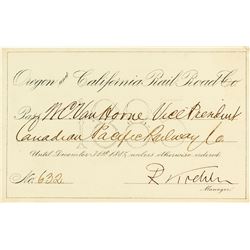 Oregon & California Rail Road Co
Pass W.C. Van Horne Vice President
Canadian Pacific Railway Co
Until December 31st 188, unless otherwise ordered.
No. 632 R. Koehler
Manager